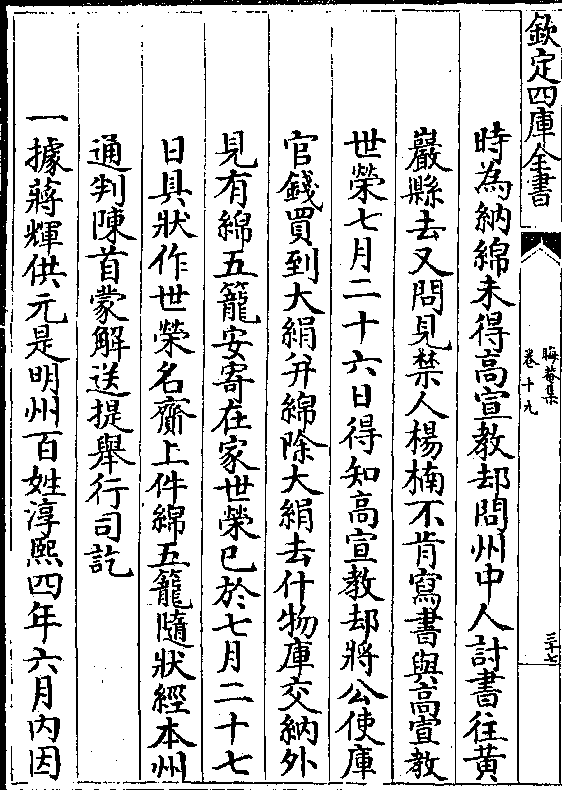 欽定四庫全書
晦菴集
卷十九
三十七
時為納綿未得髙宣教却問州中人計書往黃
巖縣去又問見禁人楊楠不肯寫書與髙宣教
世榮七月二十六日得知髙宣教却將公使庫
官錢買到大絹并綿除大絹去什物庫交納外
見有綿五籠安寄在家世榮已於七月二十七
日具狀作世榮名齎上件綿五籠隨狀經本州
通判陳首蒙解送提舉行司訖
一據蔣輝供元是明州百姓淳熙四年六月內因